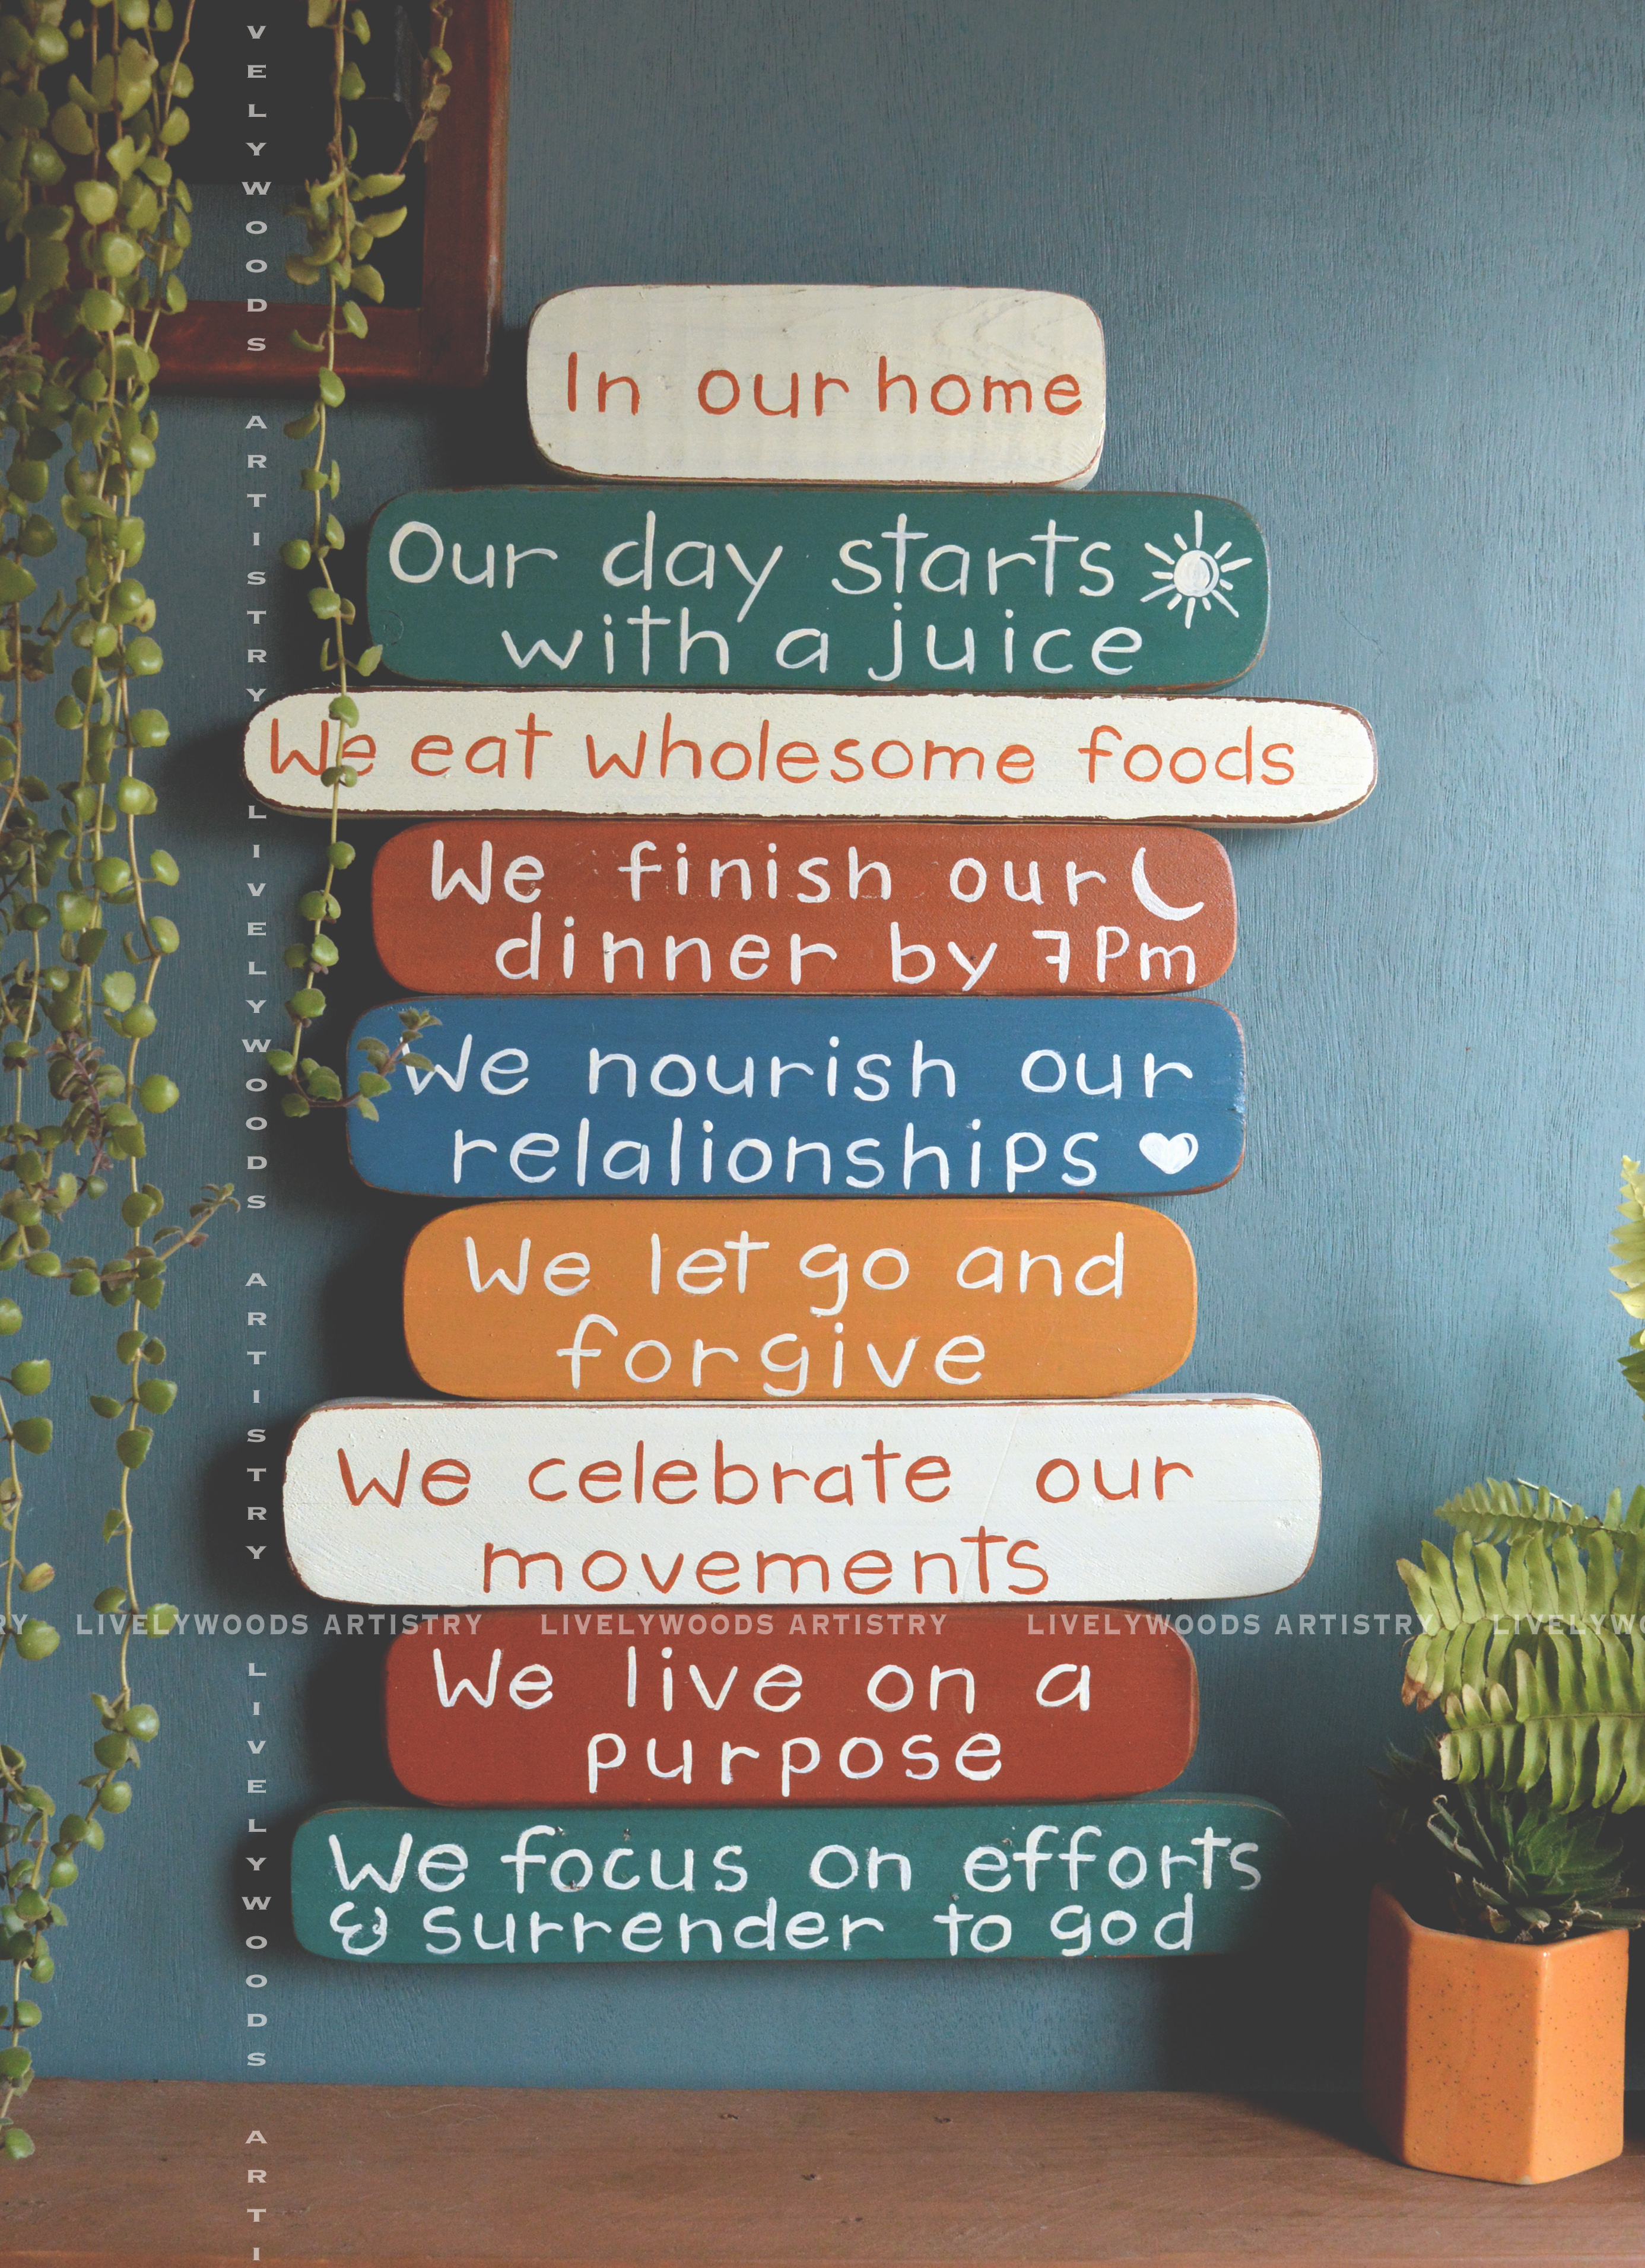 In our home
Our day starts
with a juice
We eat wholesome foods
We finish our
dinner by 7Pm
We nourish our
relalionships
We let go and
forgive
We celebrate our
movements
We live on a
purpose
We focus on efforts
& surrender to god
RY LIVELYWOODS ARTISTRY LIVELYWOODS ARTISTRY LIVELYWOODS ARTISTRY LIVELYWO
VELYWOODS ARTISTRY LIVELYWOODS ARTISTRY LIVELYWOODS ARTI